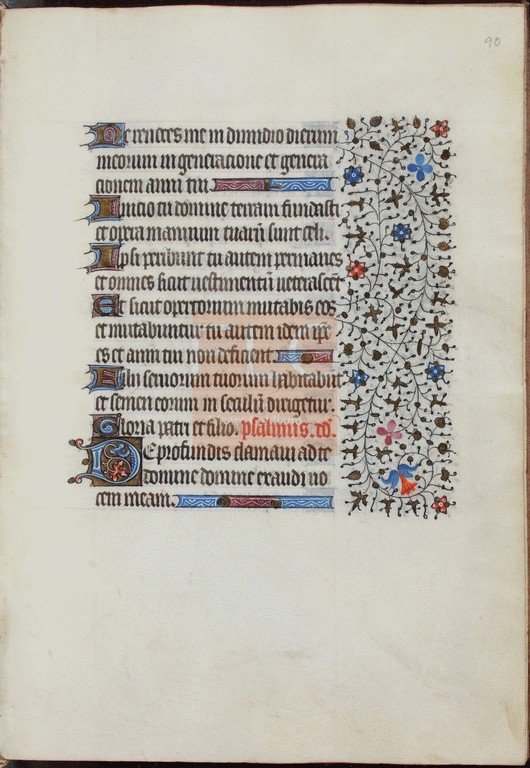 90
Ne reuoces me in dimidio dierum
meorum in generacione et genera
cionem anni tui
Inicio tu domine terram fundasti
et opera manuum tuarũ sunt celi.
Ipsi peribunt tu autem permanes
et omnes sicut uestimentũ ueterascẽt
Et sicut opertorium mutabis eos
et mutabuntur tu autem idem ipse
es et anni tui non deficient.
Filii seruorum tuorum habitabũt
et semen eorum in seculũ dirigetur.
Gloria patri et filio. psalmus. dd.
De profundis clamaui ad te
domine domine exaudi uo
cem meam.